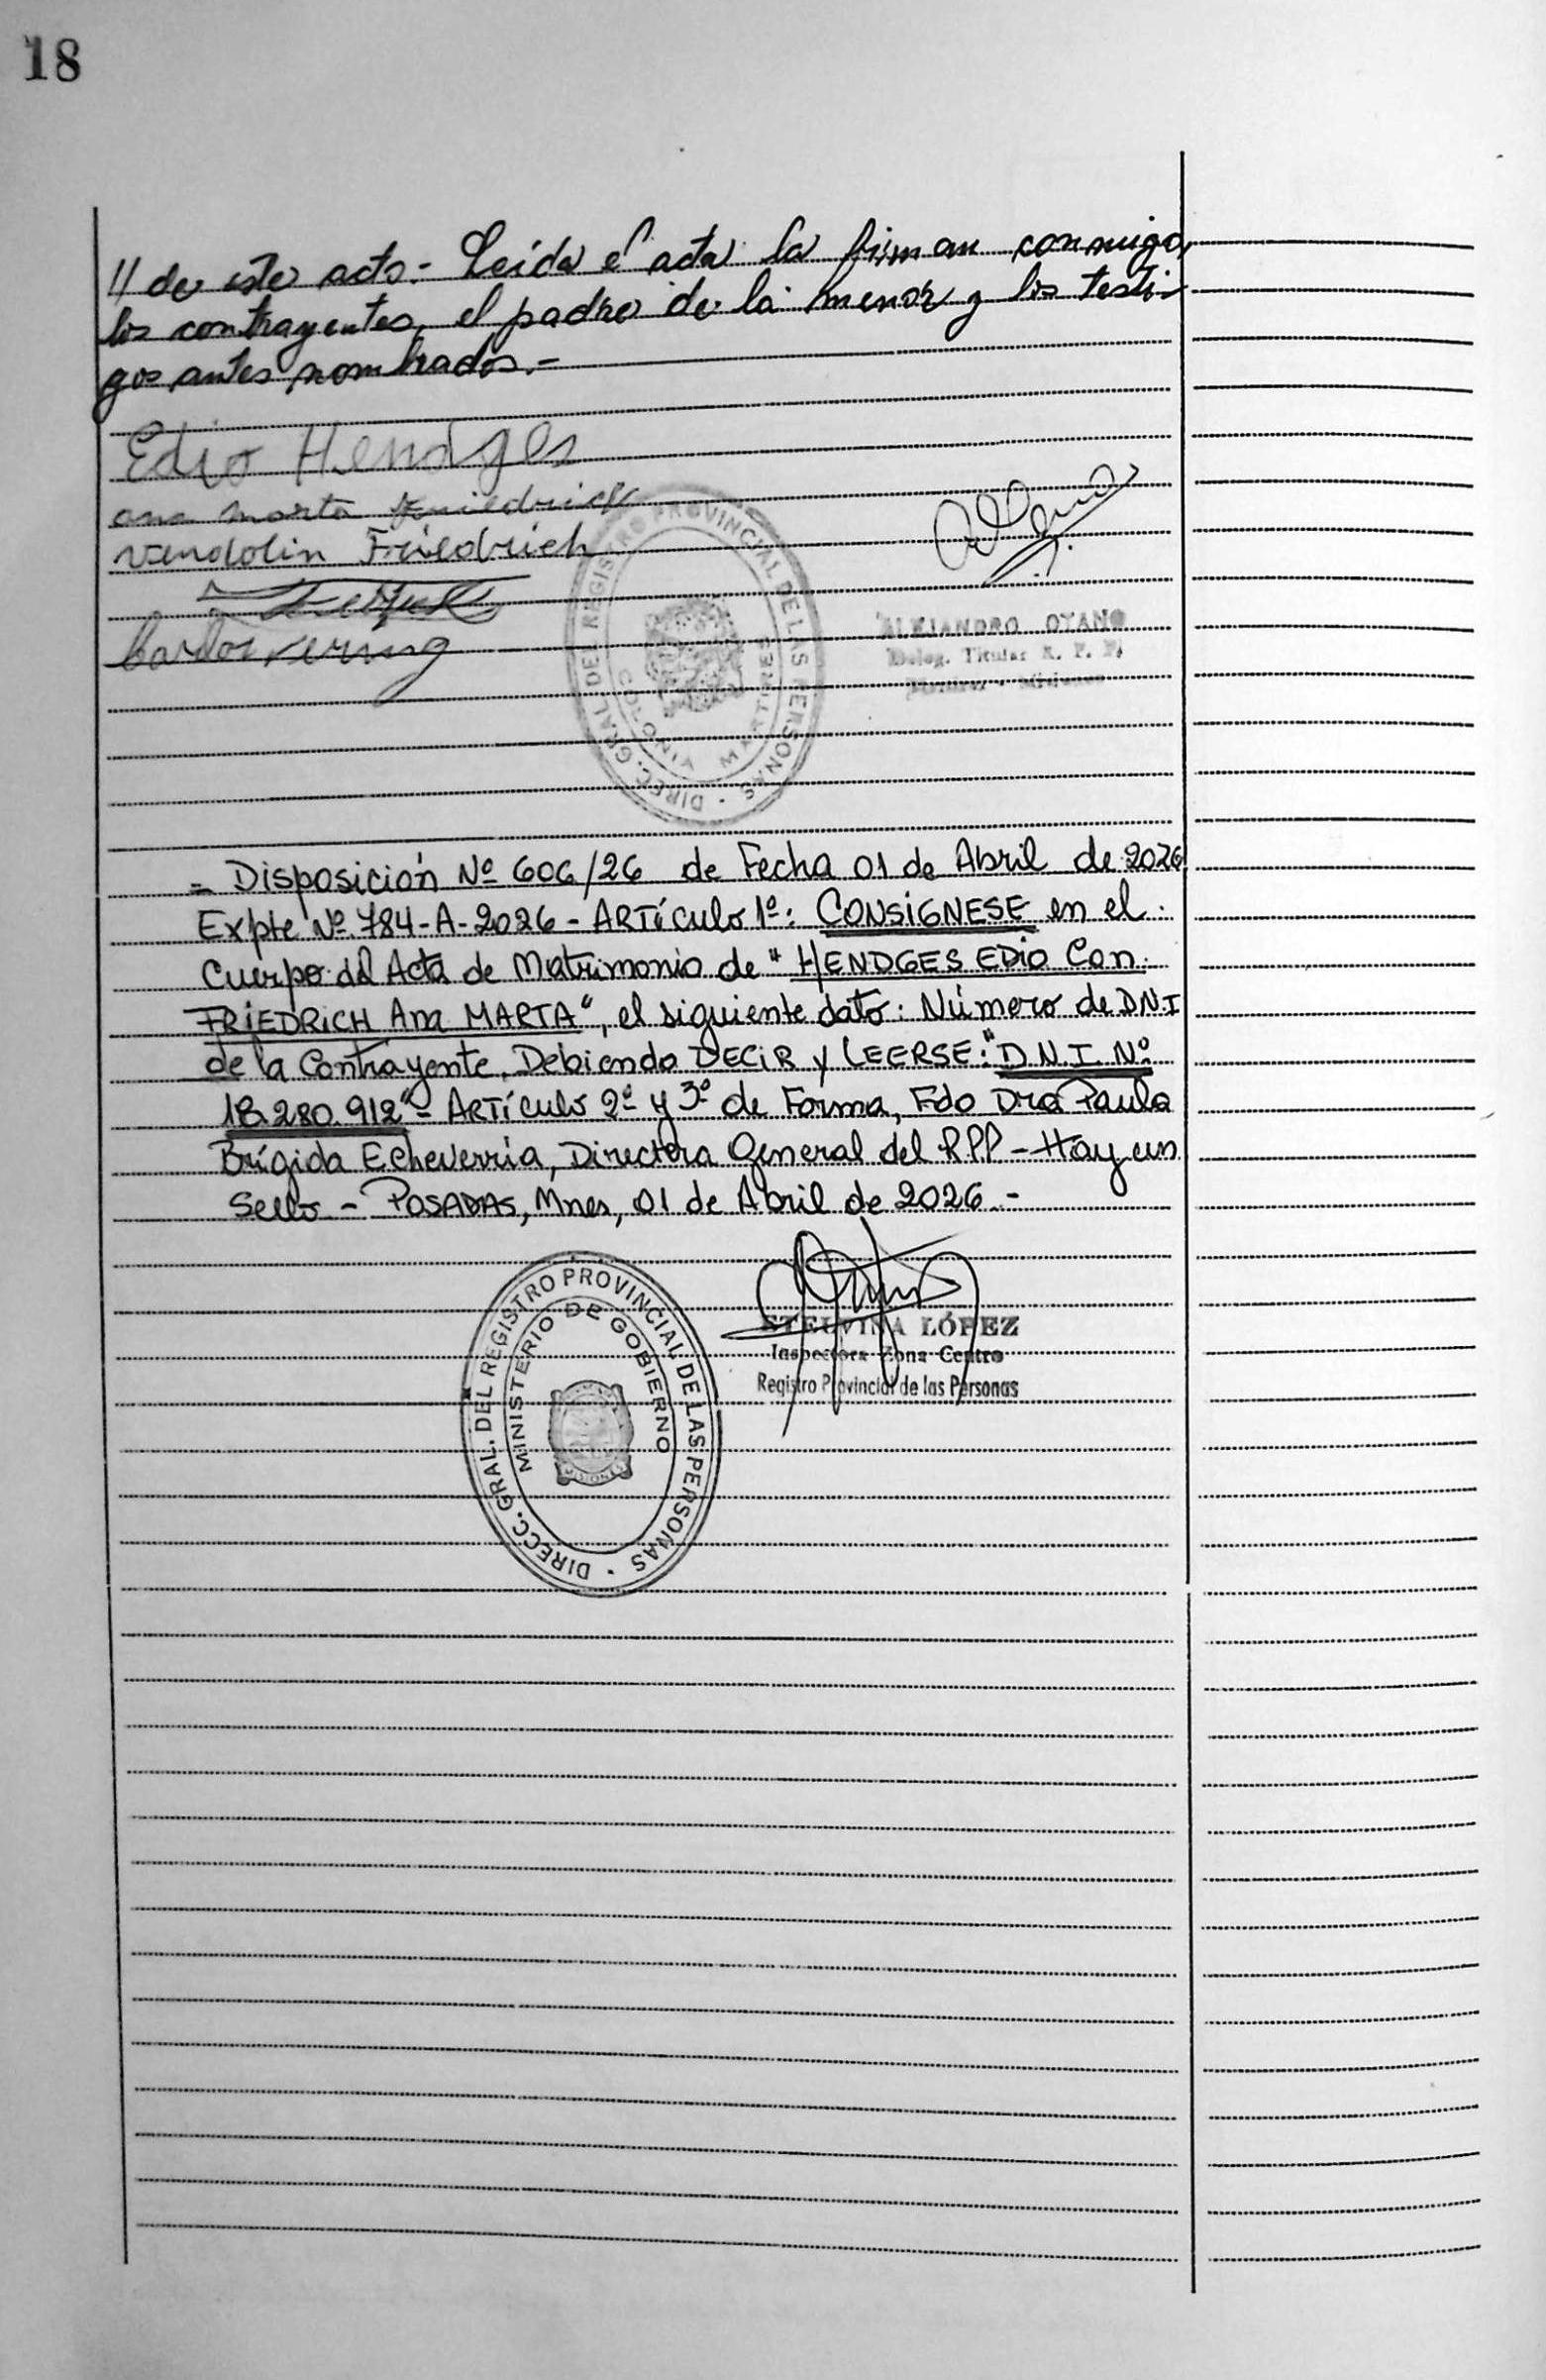 18
// de este acto.- Leída el acta la firman conmigo,
los contrayentes, el padre de la menor y los testi-
gos antes nombrados.-
Edio Hendges
ana marta Friedrich
Vendolin Friedrich
Carlos
DIREC. GRAL. DEL REGISTRO PROVINCIAL DE LAS PERSONAS
COLONIA MARTIRES
ALEJANDRO OYANO
Deleg. Titular R. P. P.
Martires - Misiones
= Disposición Nº 606/26 de Fecha 01 de Abril de 2026
Expte Nº 784-A-2026 - ARTÍCULO 1º: CONSIGNESE en el
Cuerpo del Acta de Matrimonio de "HENDGES EDIO Con
FRIEDRICH Ana MARTA", el siguiente dato: Número de D.N.I
de la Contrayente, Debiendo DECIR y LEERSE: "D.N.I. Nº
18.280.912"- ARTÍCULO 2º y 3º de Forma, Fdo Dra Paula
Brígida Echeverría, Directora General del RPP - Hay un
Sello - POSADAS, Mnes, 01 de Abril de 2026.-
DIRECC. GRAL. DEL REGISTRO PROVINCIAL DE LAS PERSONAS
MINISTERIO DE GOBIERNO
MISIONES
ETELVINA LÓPEZ
Inspectora Zona Centro
Registro Provincial de las Personas